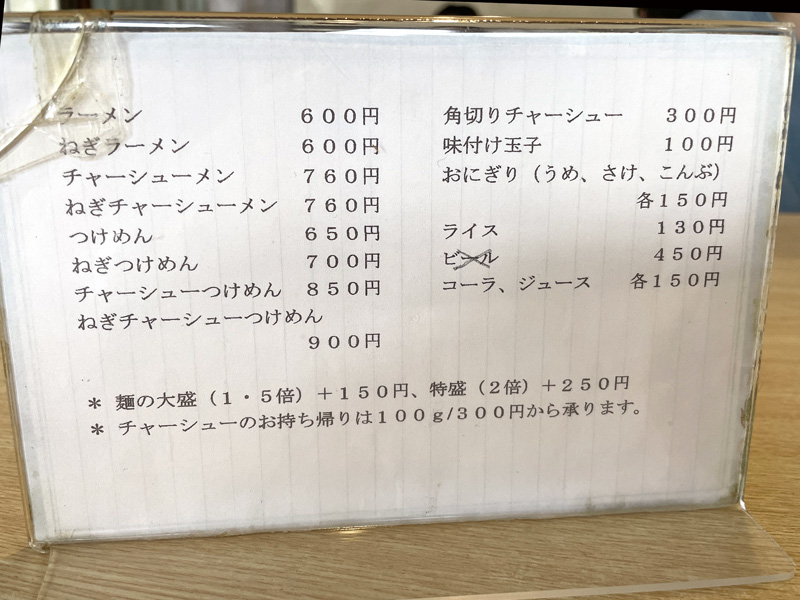 ラーメン ６００円
ねぎラーメン ６００円
チャーシューメン ７６０円
ねぎチャーシューメン ７６０円
つけめん ６５０円
ねぎつけめん ７００円
チャーシューつけめん ８５０円
ねぎチャーシューつけめん
９００円
角切りチャーシュー ３００円
味付け玉子 １００円
おにぎり（うめ、さけ、こんぶ）
各１５０円
ライス １３０円
ビール ４５０円
コーラ、ジュース 各１５０円
＊ 麺の大盛（１・５倍）＋１５０円、特盛（２倍）＋２５０円
＊ チャーシューのお持ち帰りは１００ｇ/３００円から承ります。